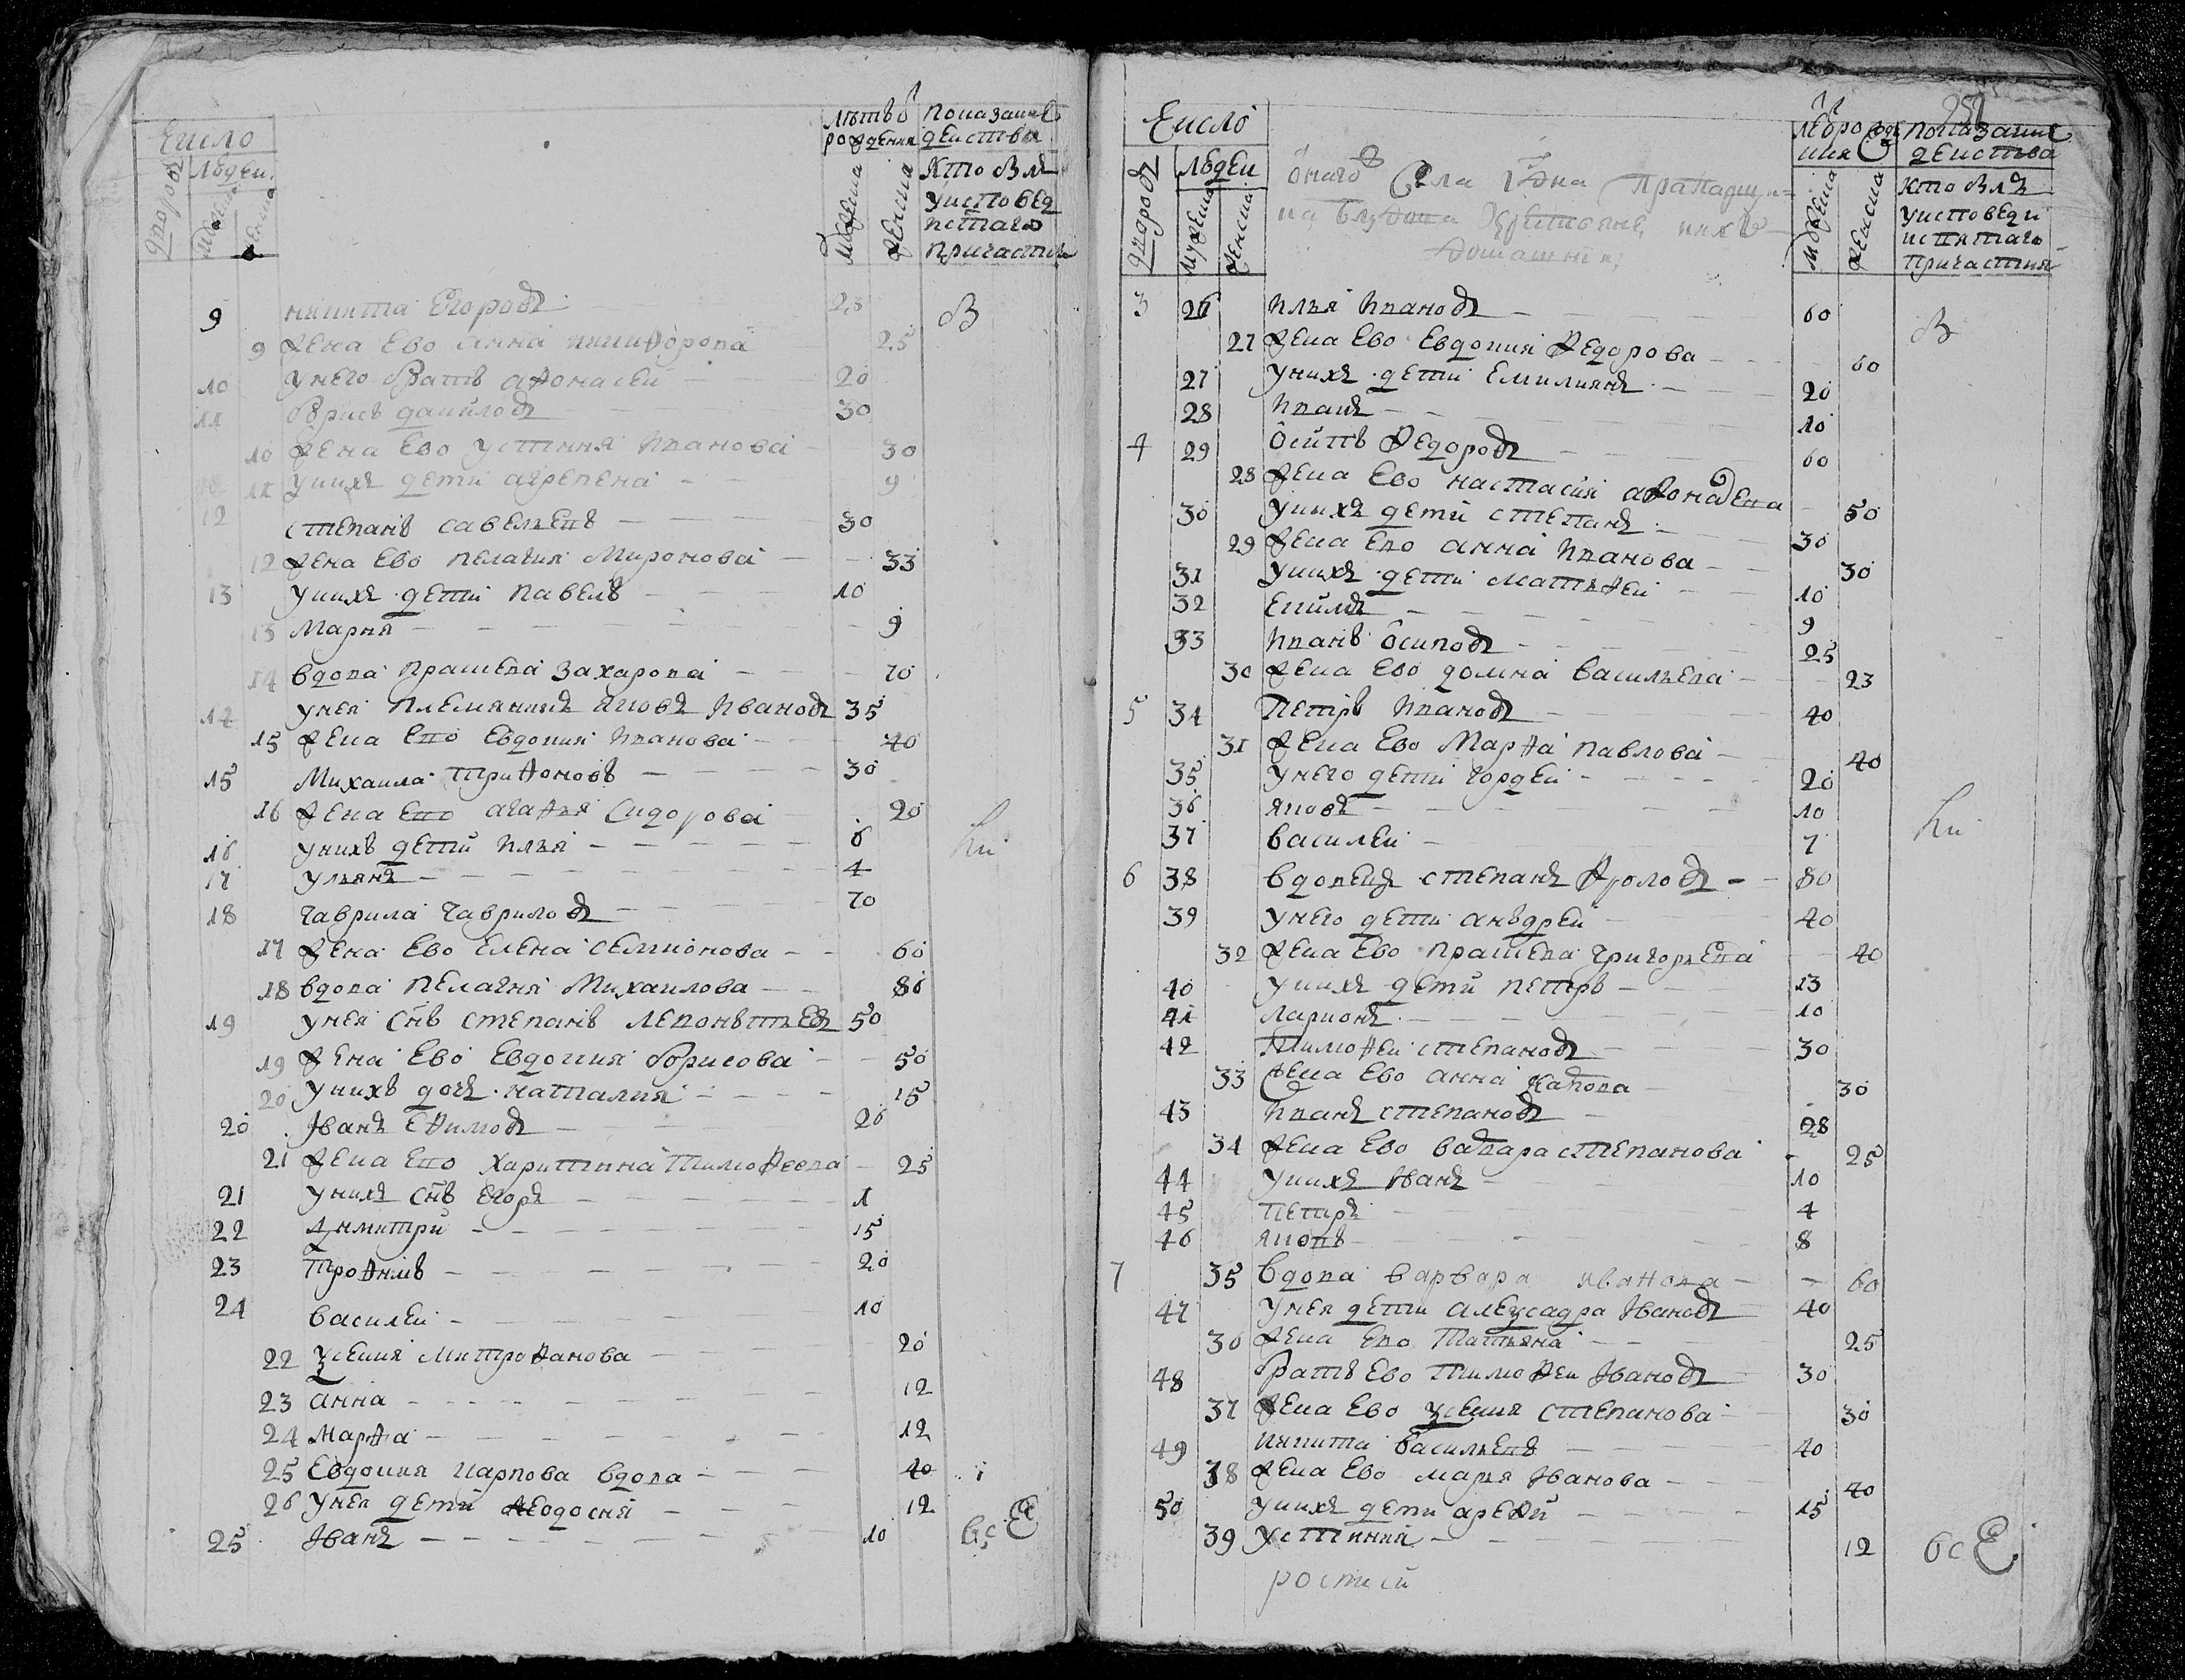 Число
дворовъ
людей
мужеска
женска
лѣтъ от рождения
мужеска
женска
показание действа
кто былъ
у исповеди
и стаго
причастия
9 никита Егоровъ 28
9 жена Ево анна никифорова 25
10 у него братъ афонасеи 20
11 борисъ даниловъ 30
10 жена Ево устинья Иванова 30
11 у нихъ дети агрепена 9
12 степанъ савельевъ 30
12 жена Ево пелагия Миронова 33
13 у нихъ дети павелъ 10
13 Мария 9
14 вдова прасковья захарова 70
14 у нея племянникъ яковъ Ивановъ 35
15 жена Ево Евдокия Иванова 40
15 Михаила Трифоновъ 30
16 жена Ево агафья Сидорова 20
16 у нихъ дети илья 6
17 ульянъ 4
18 гаврила гавриловъ 70
17 жена Ево Елена семионова 60
18 вдова пелагия Михаилова 80
19 у нея снъ степанъ леонтьевъ 50
19 жена Ево Евдокия борисова 50
20 у нихъ дочь наталия 15
20 Iванъ Ефимовъ 20
21 жена Ево харитина тимофеева 25
21 у нихъ снъ егоръ 1
22 димитри 15
23 трофимъ 20
24 василеи 10
22 ксения митрофанова 20
23 анна 12
24 марфа 12
25 Евдокия карпова вдова 40
26 у нея дети феодосия 12
25 Iванъ 10
всЕ
Число
дворовъ
людей
мужеска
женска
оного Села
крестьяне и ихъ
домашния
мужеска
женска
показание
действа
кто былъ
у исповеди
и святаго
причастия
3 26 илья Ивановъ 60
27 жена Ево Евдокия федорова 60
27 у нихъ дети Емилиянъ 20
28 Иванъ 10
4 29 Осипъ федоровъ 60
28 жена Ево настасия афонасева 50
30 у нихъ дети степанъ 30
29 жена Ево анна Иванова 30
31 у нихъ дети матфеи 10
32 9
33 Иванъ Осиповъ 25
30 жена Ево домна васильева 23
5 34 Петръ Ивановъ 40
31 жена Ево Марфа павлова 40
35 у него дети гордеи 20
36 яковъ 10
37 василеи 7
6 38 вдовецъ степанъ фроловъ 80
39 у него дети анъдреи 40
32 жена Ево прасковья григорьева 40
40 у нихъ дети петръ 13
41 ларионъ 10
42 Тимофеи степановъ 30
33 жена Ево анна карпова 30
43 Иванъ степановъ 28
34 жена Ево варвара степанова 25
44 у нихъ Iванъ 10
45 петръ 4
46 яковъ 8
7 35 вдова варвара иванова 60
47 у нея дети алексадра Iвановъ 40
30 жена Ево татьяна 25
48 братъ Ево тимофеи Iвановъ 30
37 жена Ево ксения степанова 30
49 никита васильевъ 40
38 жена Ево марья Iванова 40
50 у нихъ дети арефи 15
39 устиния 12
всЕ